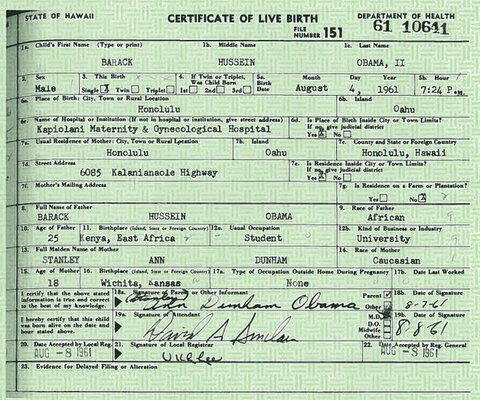 STATE OF HAWAII
CERTIFICATE OF LIVE BIRTH
DEPARTMENT OF HEALTH
FILE NUMBER 151
61 10641
1a. Child's First Name (Type or print) 1b. Middle Name 1c. Last Name
BARACK HUSSEIN OBAMA, II
2. Sex 3. This Birth 4. If Twin or Triplet, Was Child Born 5a. Birth Date Month Day Year 5b. Hour
Male Single X Twin Triplet 1st 2nd 3rd August 4, 1961 7:24 P.M.
6a. Place of Birth: City, Town or Rural Location 6b. Island
Honolulu Oahu
6c. Name of Hospital or Institution (If not in hospital or institution, give street address) 6d. Is Place of Birth Inside City or Town Limits? If no, give judicial district
Kapiolani Maternity & Gynecological Hospital Yes X No
7a. Usual Residence of Mother: City, Town or Rural Location 7b. Island 7c. County and State or Foreign Country
Honolulu Oahu Honolulu, Hawaii
7d. Street Address 7e. Is Residence Inside City or Town Limits? If no, give judicial district
6085 Kalanianaole Highway Yes X No
7f. Mother's Mailing Address 7g. Is Residence on a Farm or Plantation?
Yes No X
8. Full Name of Father 9. Race of Father
BARACK HUSSEIN OBAMA African 9
10. Age of Father 11. Birthplace (Island, State or Foreign Country) 12a. Usual Occupation 12b. Kind of Business or Industry
25 Kenya, East Africa Student University
13. Full Maiden Name of Mother 14. Race of Mother
STANLEY ANN DUNHAM Caucasian
15. Age of Mother 16. Birthplace (Island, State or Foreign Country) 17a. Type of Occupation Outside Home During Pregnancy 17b. Date Last Worked
18 Wichita, Kansas None
I certify that the above stated information is true and correct to the best of my knowledge. 18a. Signature of Parent or Other Informant Parent Other 18b. Date of Signature
(Stanley) Ann Dunham Obama 8-7-61
I hereby certify that this child was born alive on the date and hour stated above. 19a. Signature of Attendant M.D. D.O. Midwife Other 19b. Date of Signature
David A Sinclair 8-8-61
20. Date Accepted by Local Reg. 21. Signature of Local Registrar 22. Date Accepted by Reg. General
AUG -8 1961 AUG -8 1961
23. Evidence for Delayed Filing or Alteration